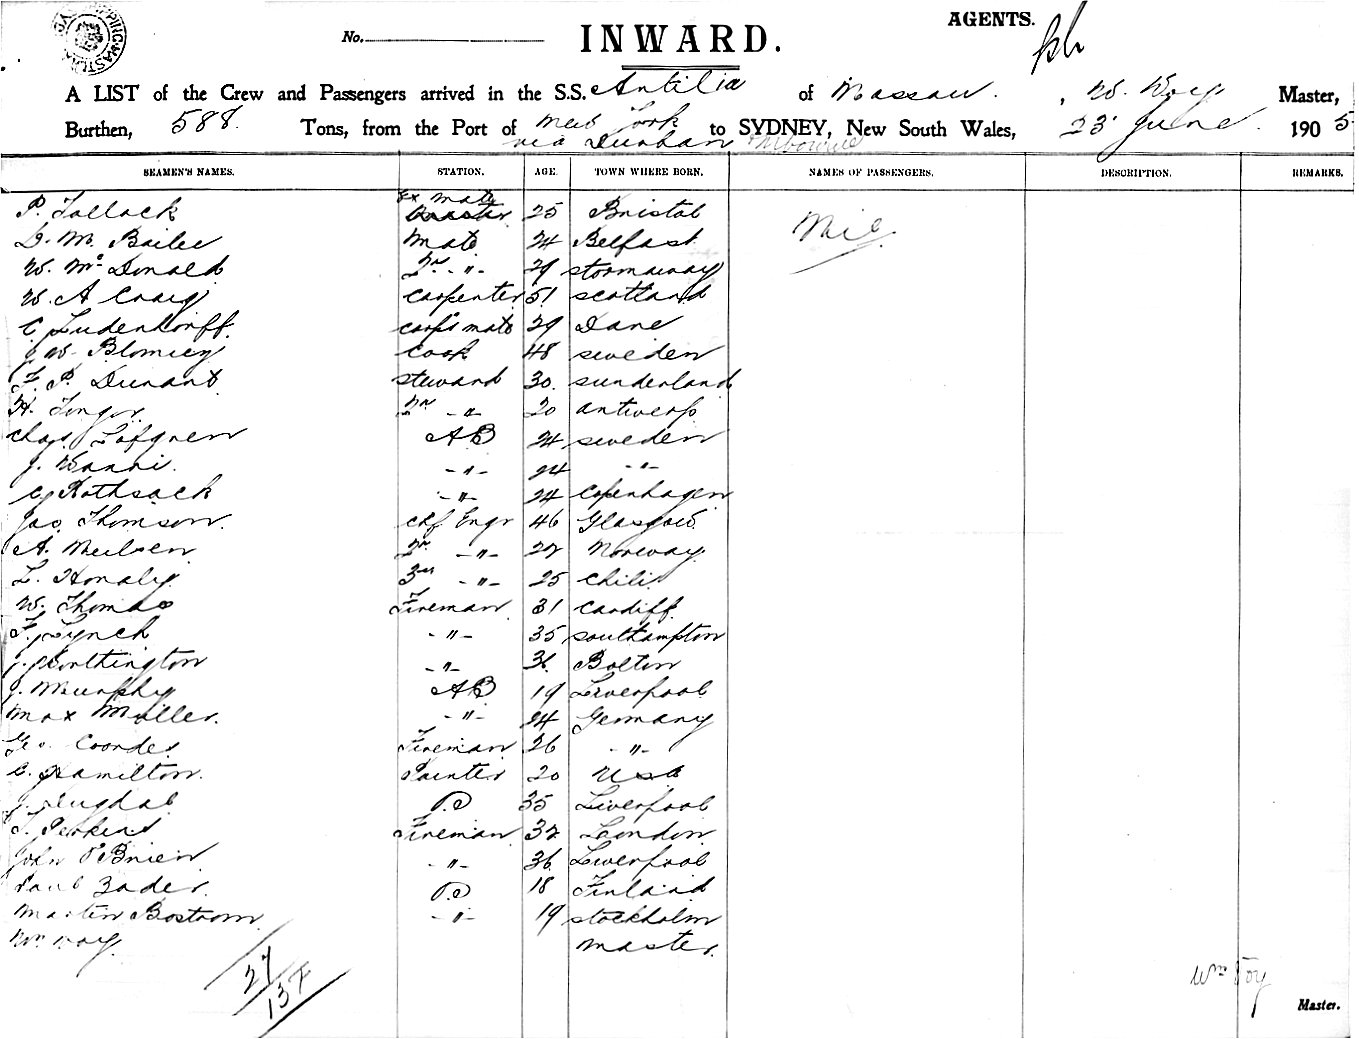 AGENTS.
No.
INWARD.
A LIST of the Crew and Passengers arrived in the S.S. Antilia of Nassau. W. Voy Master,
Burthen, 588. Tons, from the Port of New York to SYDNEY, New South Wales, 23 June 1905
via Durban Melbourne
SEAMEN'S NAMES. STATION. AGE. TOWN WHERE BORN. NAMES OF PASSENGERS. DESCRIPTION. REMARKS.
Ex Mate
P. Tallack 25 Bristol Nil
D. M. Bailee Mate 24 Belfast
W. Mc Donald 2nd -"- 29 stornaway
W. A Craig Carpenter 51 scotland
C. Ludendorff Carp's mate 29 Dane
J W. Cook 48 sweden
F. P. Durant steward 30. sunderland
H. 2nd -"- 20 antwerp
Chas Lofgren AB 24 sweden
J. -"- 24 -"-
C. Rothsack -"- 24 Copenhagen
Jas. Thomson. chf Engr 46 Glasgow.
A. Neilsen 2nd -"- 22 Norway.
L. 3rd -"- 25 Chili
W. Thomas Fireman 31 Cardiff
F. Lynch -"- 35 southampton
J. Worthington -"- 36 Bolton
J. Murphy AB 19 Liverpool
Max Muller. -"- 24 Germany
Geo Coordes Fireman 26 -"-
C. Hamilton. Painter 20 USA
J. Dugdal 35 Liverpool
T. Perkins Fireman 32 London
John O'Brien -"- 36 Liverpool
Paul Zader. 18 Finland
Martin Bostrom -"- 19 stockholm
Wm Voy. Master.
27
Wm Voy
137
Master.